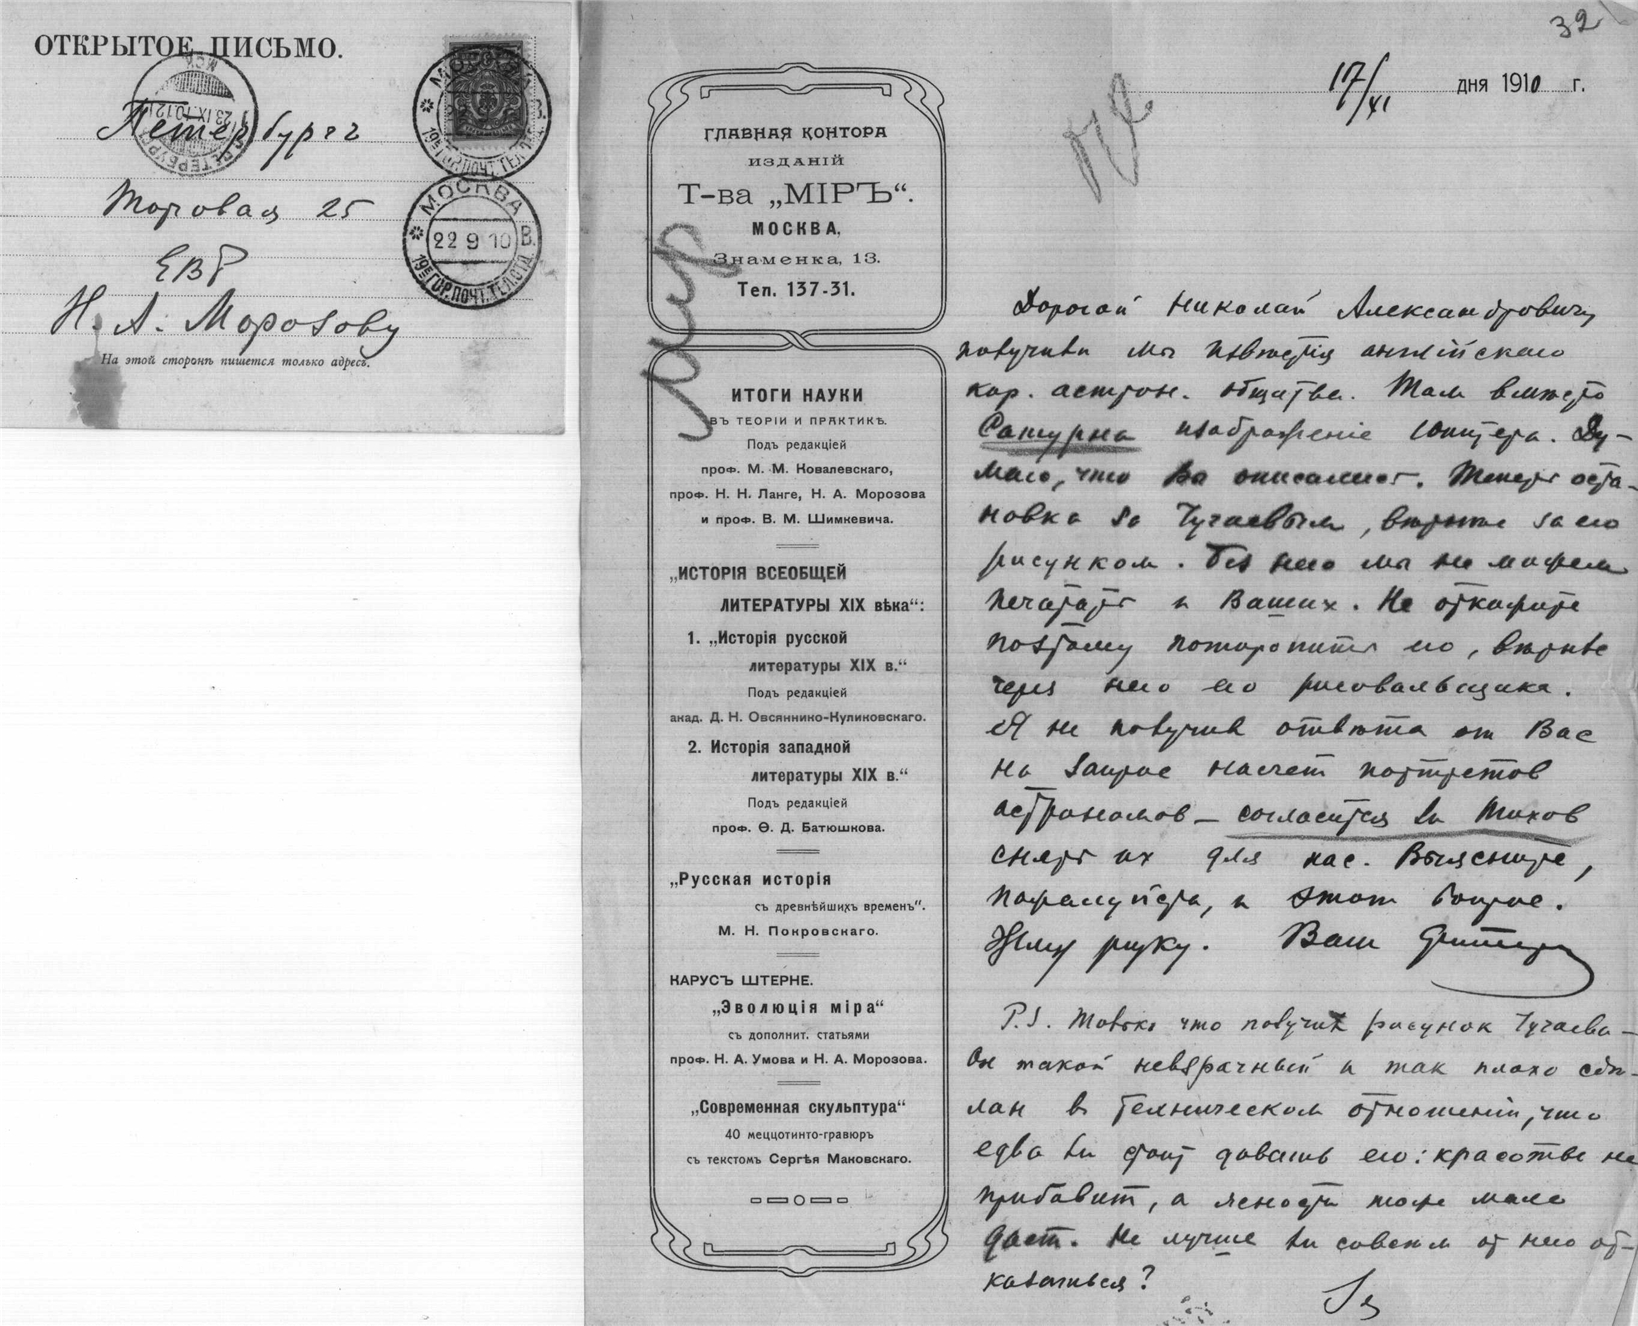 ОТКРЫТОЕ ПИСЬМО.
Петербургъ
Торговая 25
ЕВР
Н. А. Морозову
На этой сторонѣ пишется только адресъ.
МОСКВА
19Е ГОР.ПОЧТ.ТЕЛ.ОТД.
МОСКВА В.
22 9 10
19Е ГОР.ПОЧТ.ТЕЛ.ОТД.
32
17/XI дня 1910 г.
ГЛАВНАЯ КОНТОРА
ИЗДАНІЙ
Т-ва „МІРЪ“.
МОСКВА,
Знаменка, 13.
Тел. 137-31.
Мир
ИТОГИ НАУКИ
ВЪ ТЕОРІИ И ПРАКТИКѢ.
Подъ редакціей
проф. М. М. Ковалевскаго,
проф. Н. Н. Ланге, Н. А. Морозова
и проф. В. М. Шимкевича.
„ИСТОРІЯ ВСЕОБЩЕЙ
ЛИТЕРАТУРЫ XIX вѣка“:
1. „Исторія русской
литературы XIX в.“
Подъ редакціей
акад. Д. Н. Овсяннико-Куликовскаго.
2. Исторія западной
литературы XIX в.“
Подъ редакціей
проф. Ѳ. Д. Батюшкова.
„Русская исторія
съ древнѣйшихъ временъ“.
М. Н. Покровскаго.
КАРУСЪ ШТЕРНЕ.
„Эволюція міра“
съ дополнит. статьями
проф. Н. А. Умова и Н. А. Морозова.
„Современная скульптура“
40 меццотинто-гравюръ
съ текстомъ Сергѣя Маковскаго.
Дорогой Николай Александрович,
получили мы извѣстія англійскаго
кор. астрон. общества. Там вмѣсто
Сатурна изображеніе Юпитера. Ду-
маю, что Вы описались. Теперь оста-
новка за Чугаевым, вѣрнѣе за его
рисунком. Без него мы не можем
печатать и Ваших. Не откажите
поэтому поторопить его, вѣрнѣе
через него его рисовальщика.
Я не получил отвѣта от Вас
на запрос насчет портретов
астрономов – согласится ли Тихов
снять их для нас. Выясните,
пожалуйста, и этот вопрос.
Жму руку. Ваш
P.S. Только что получил рисунок Чугаева –
Он такой невзрачный и так плохо сдѣ-
лан в техническом отношеніи, что
едва ли стоит давать его: красотѣ не
прибавит, а ясности тоже мало
даст. Не лучше ли совсѣм от него от-
казаться?